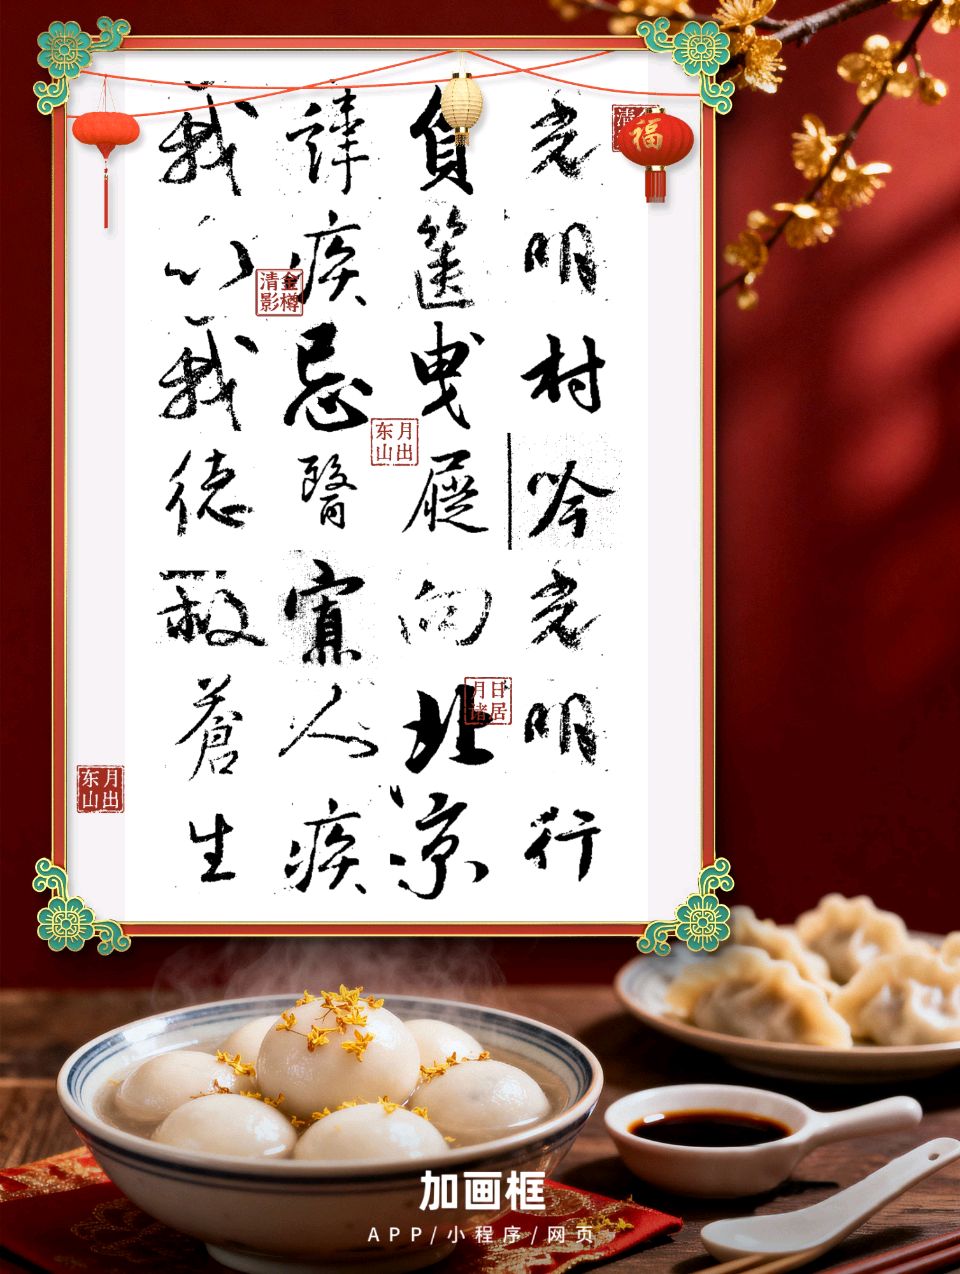 光明村吟光明行
負篋曳屣向北涼
諱疾忌醫寡人疾
我以我德救蒼生
福
金樽清影
月出东山
日居月诸
月出东山
加画框
APP/小程序/网页